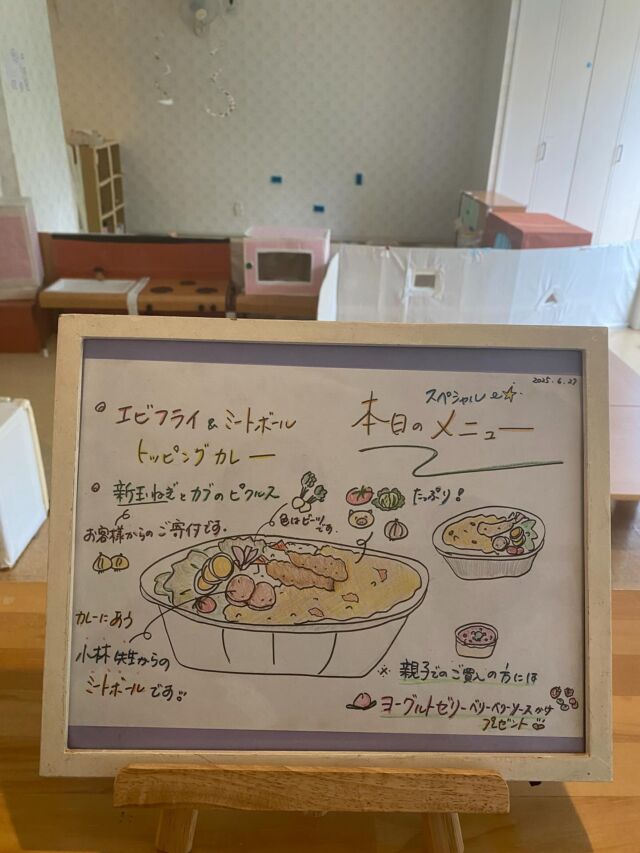 2025.6.27
スペシャル
本日のメニュー
エビフライ&ミートボール
トッピングカレー
新玉ねぎとカブのピクルス
お客様からのご寄付です。
色はビーツです。
たっぷり!
カレーにあう
小林先生からの
ミートボールです!!
※ 親子でのご買入の方には
ヨーグルトゼリーベリーベリーソースかけ
プレゼント